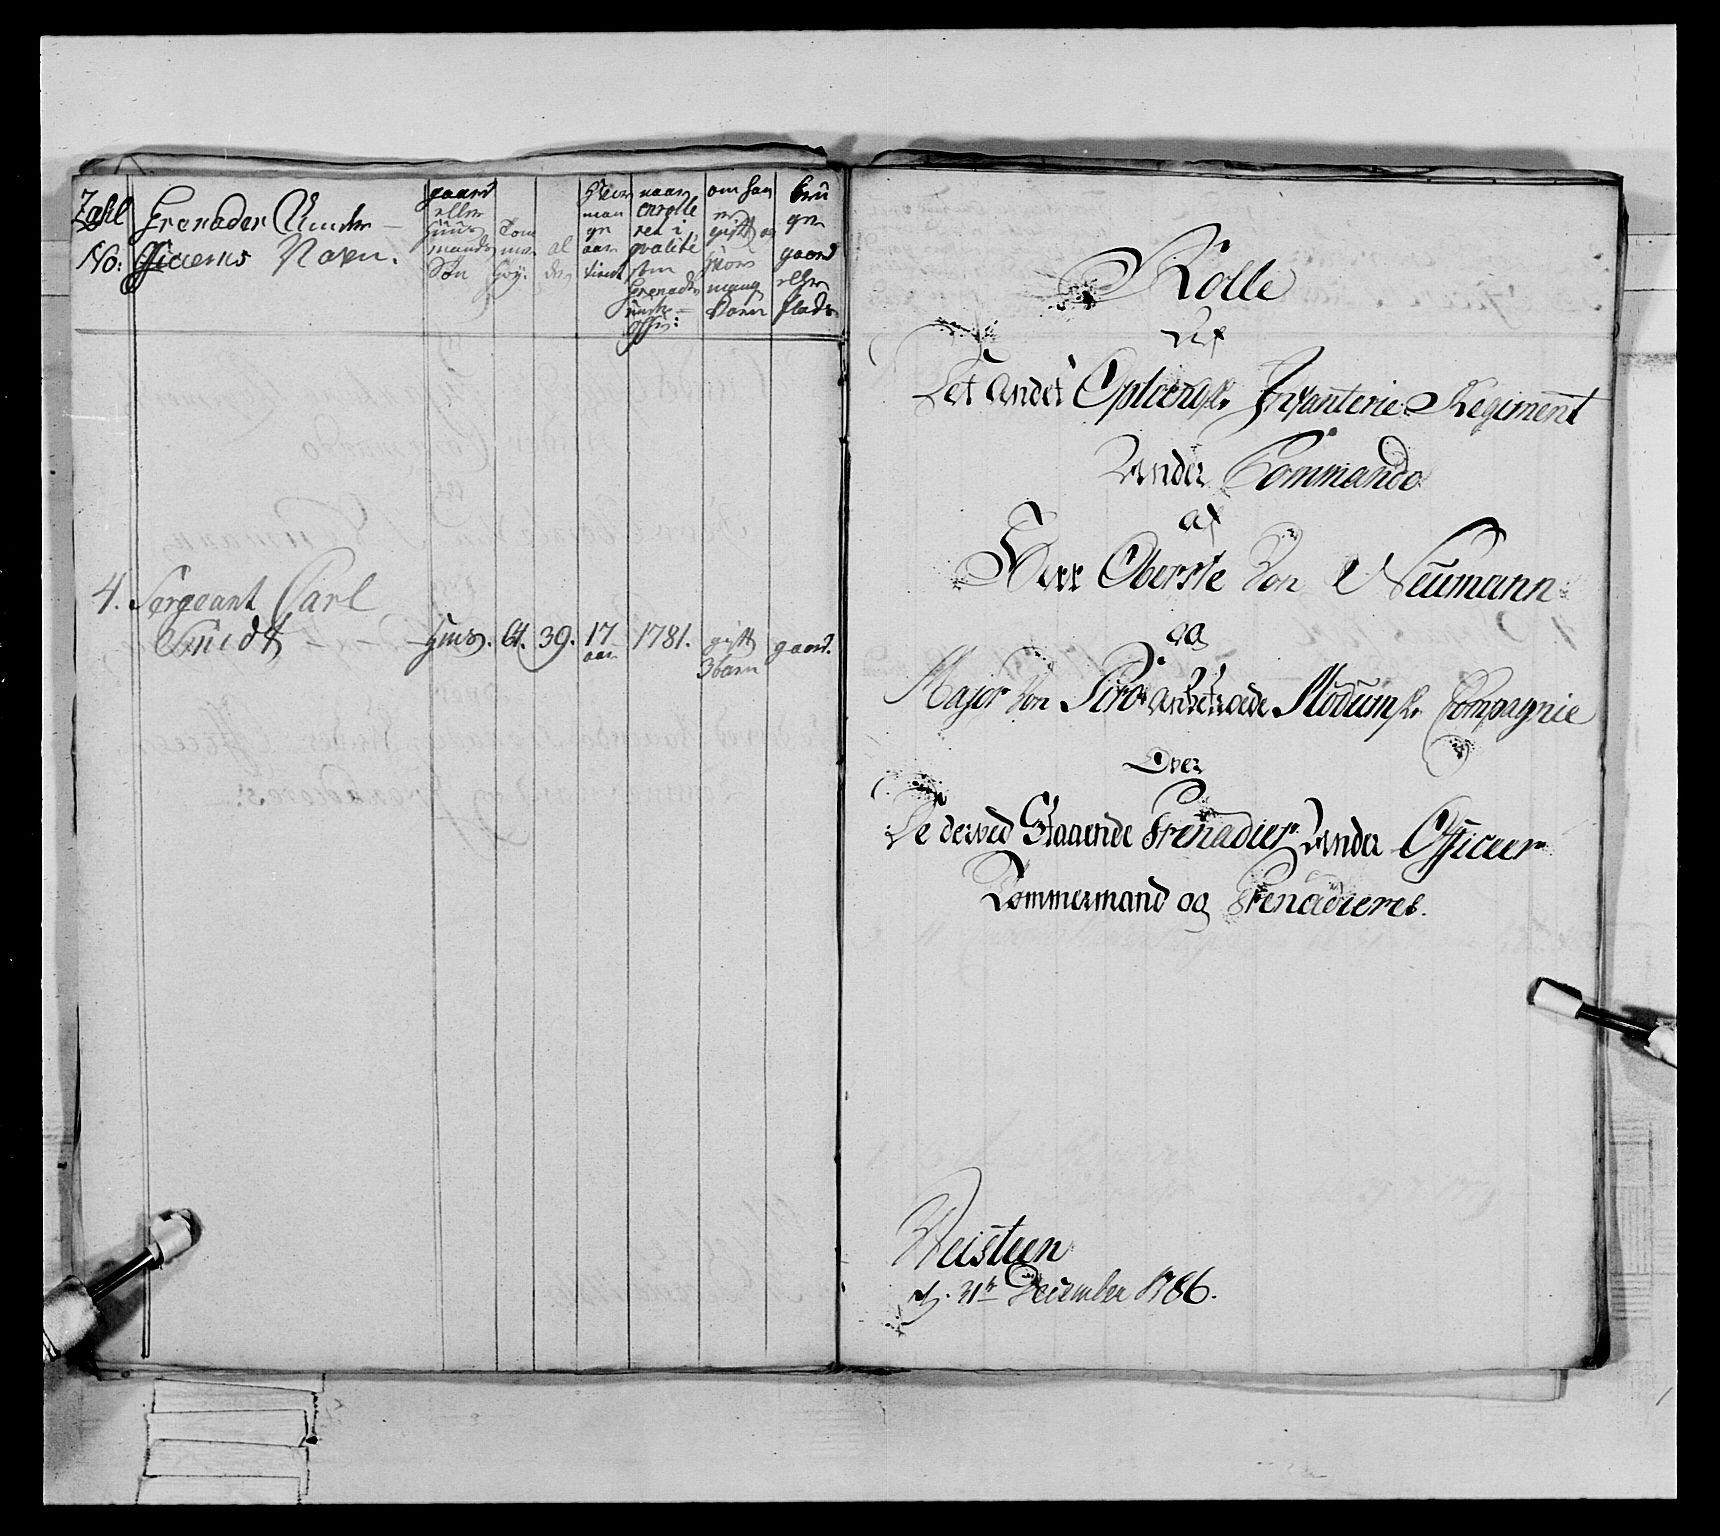 Zahl
No:
Grenader Under-
officerns Navn.
gaard
eller
huus
mands
Søn
Tom
mer
høy.
al
der
hvor
man
ge
aar
tient
naar
enrolle
red i
qvalité
som
Grenader
under-
offic:
om han
er
gift og
hvor
mang
børn
bru
ger
gaard
eller
plads
4. Sergeant Carl
Smidt
huus. 61. 39. 17 aar 1781. gift 3 barn gaard.
Rolle
Af
Det Andet Oplandsk. Infanterie Regiment
Under Commando
af
Herr Oberste Von Neumann
og
Major Von Siro anbetroede Modumsk. Compagnie
Over
De derved Staaende Grenadier Under Officeer
Tommermand og Grenadieres.
Weisteen
d. 31te December 1786.